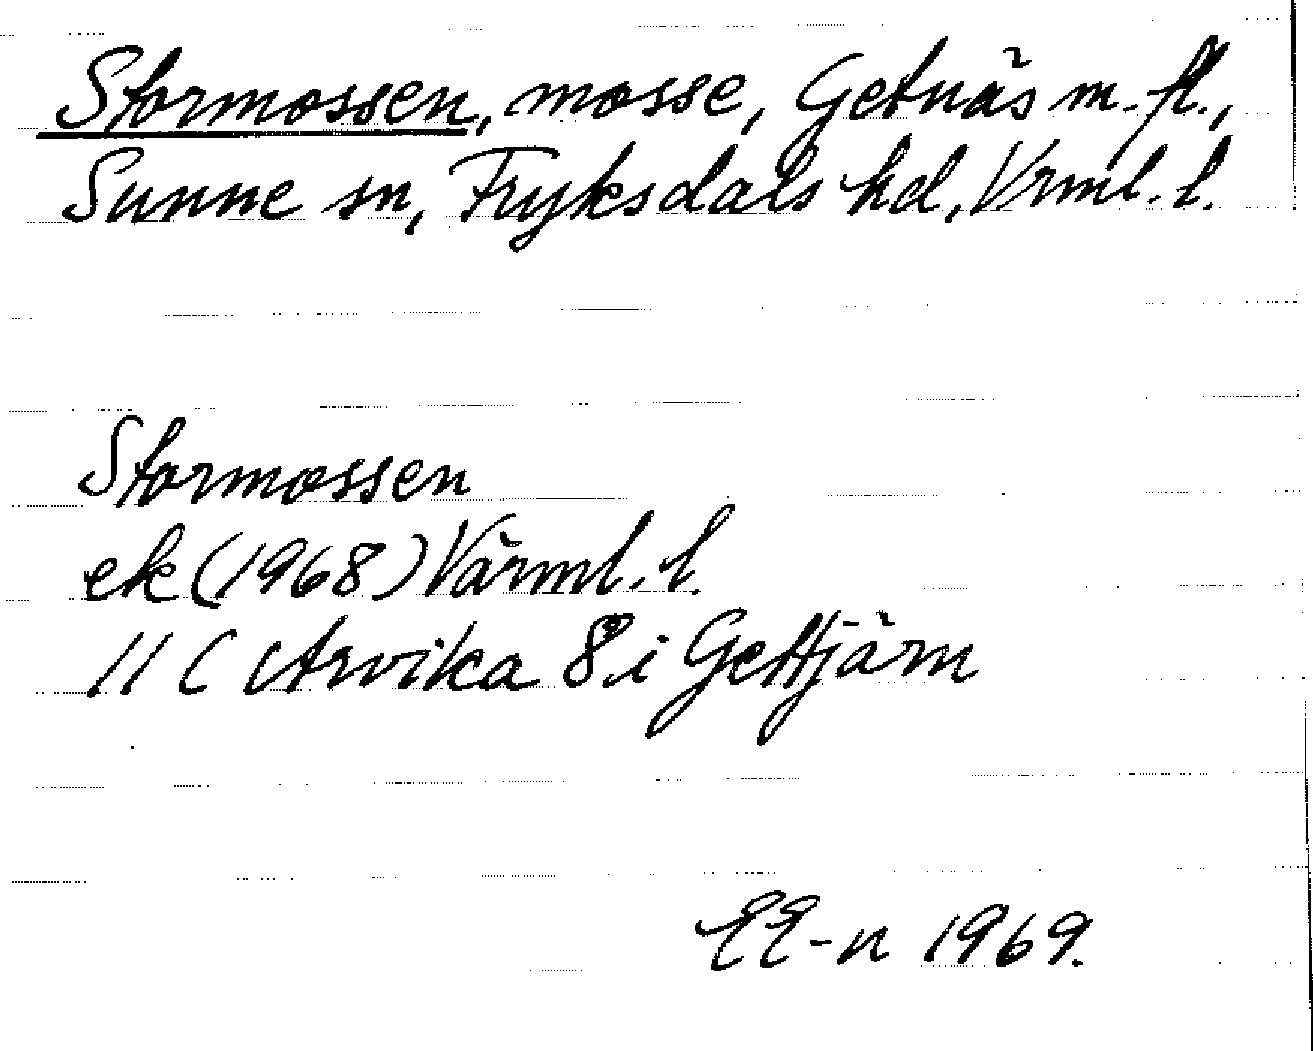 Stormossen, mosse, Getnäs m. fl.,
Sunne sn, Fryksdals hd, Vrml. l.
Stormossen
ek (1968) Värml. l.
11 C Arvika 8 i Gettjärn
EE-n 1969.